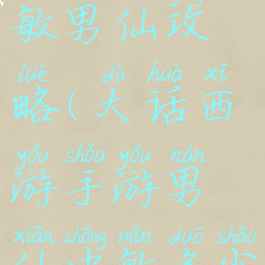 敏男仙攻
lüè dà huà xī
略(大话西
yóu shǒu yóu nán
游手游男
xiān zhōng mǐn duō shǎo